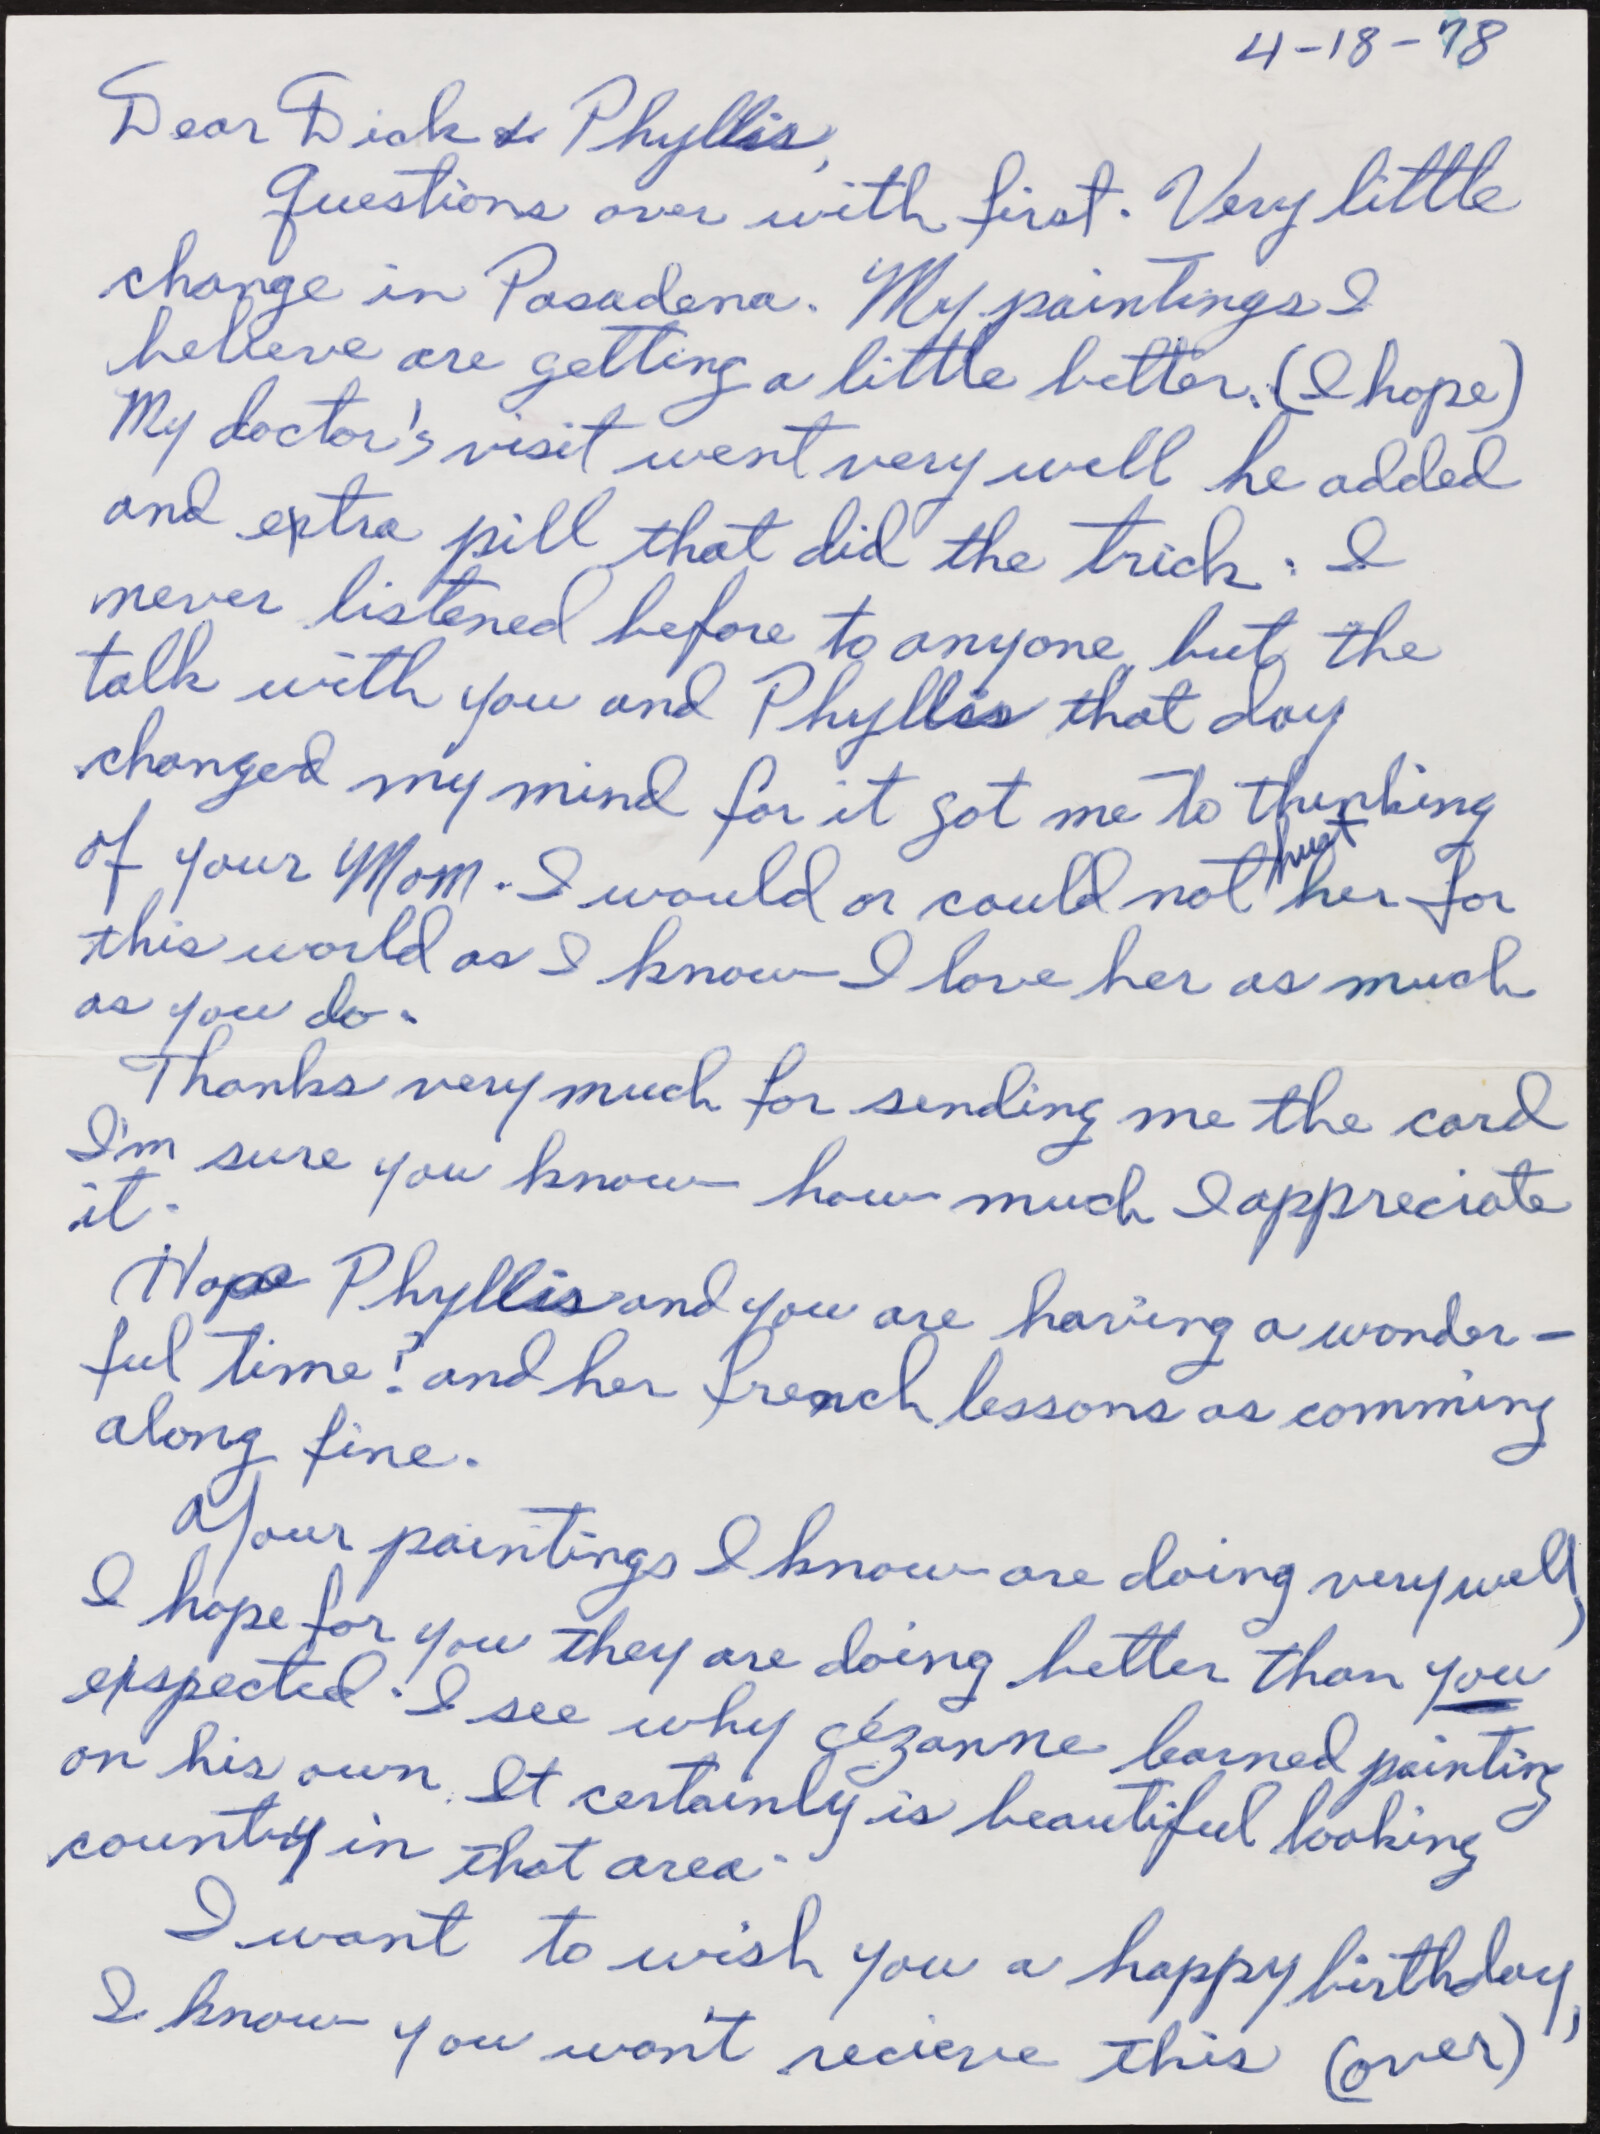 4-18-78
Dear Dick & Phyllis,
Questions over with first. Very little
change in Pasadena. My paintings I
believe are getting a little better. (I hope)
My doctor's visit went very well he added
and extra pill that did the trick. I
never listened before to anyone but the
talk with you and Phyllis that day
changed my mind for it got me to thinking
of your Mom. I would or could not hurt her for
this world as I know I love her as much
as you do.
Thanks very much for sending me the card
I'm sure you know how much I appreciate
it.
Hope Phyllis and you are having a wonder-
ful time! and her french lessons as comming
along fine.
Your paintings I know are doing very well,
I hope for you they are doing better than you
exspected. I see why Cézanne learned painting
on his own. It certainly is beautiful looking
county in that area.
I want to wish you a happy birthday,
I know you won't recieve this (over)